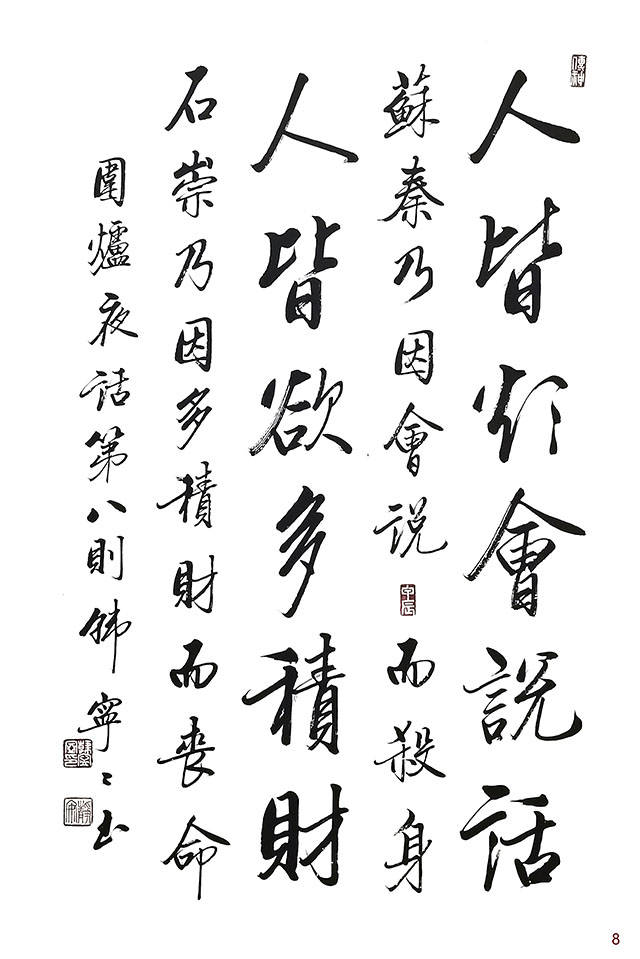 人皆欲會說話
蘇秦乃因會说而殺身
人皆欲多積財
石崇乃因多積財而喪命
圍爐夜話第八則韩寧〻书
8